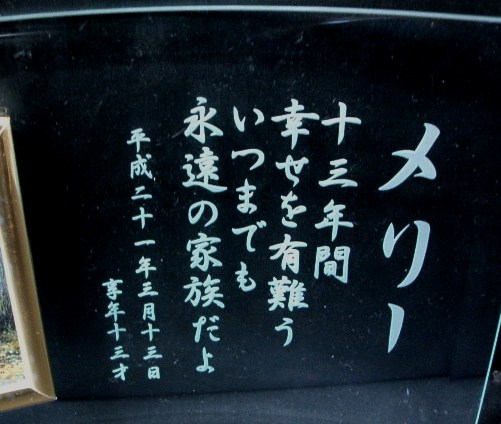 メリー
十三年間
幸せを有難う
いつまでも
永遠の家族だよ
平成二十一年三月十三日
享年十三才